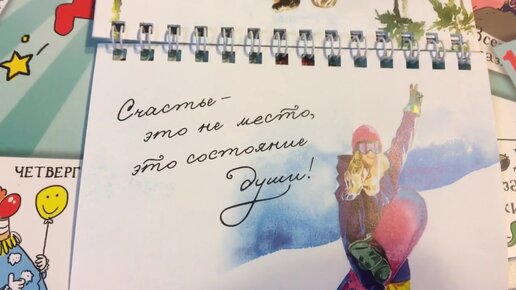 Счастье –
это не место,
это состояние
души!
ЧЕТВЕРГ